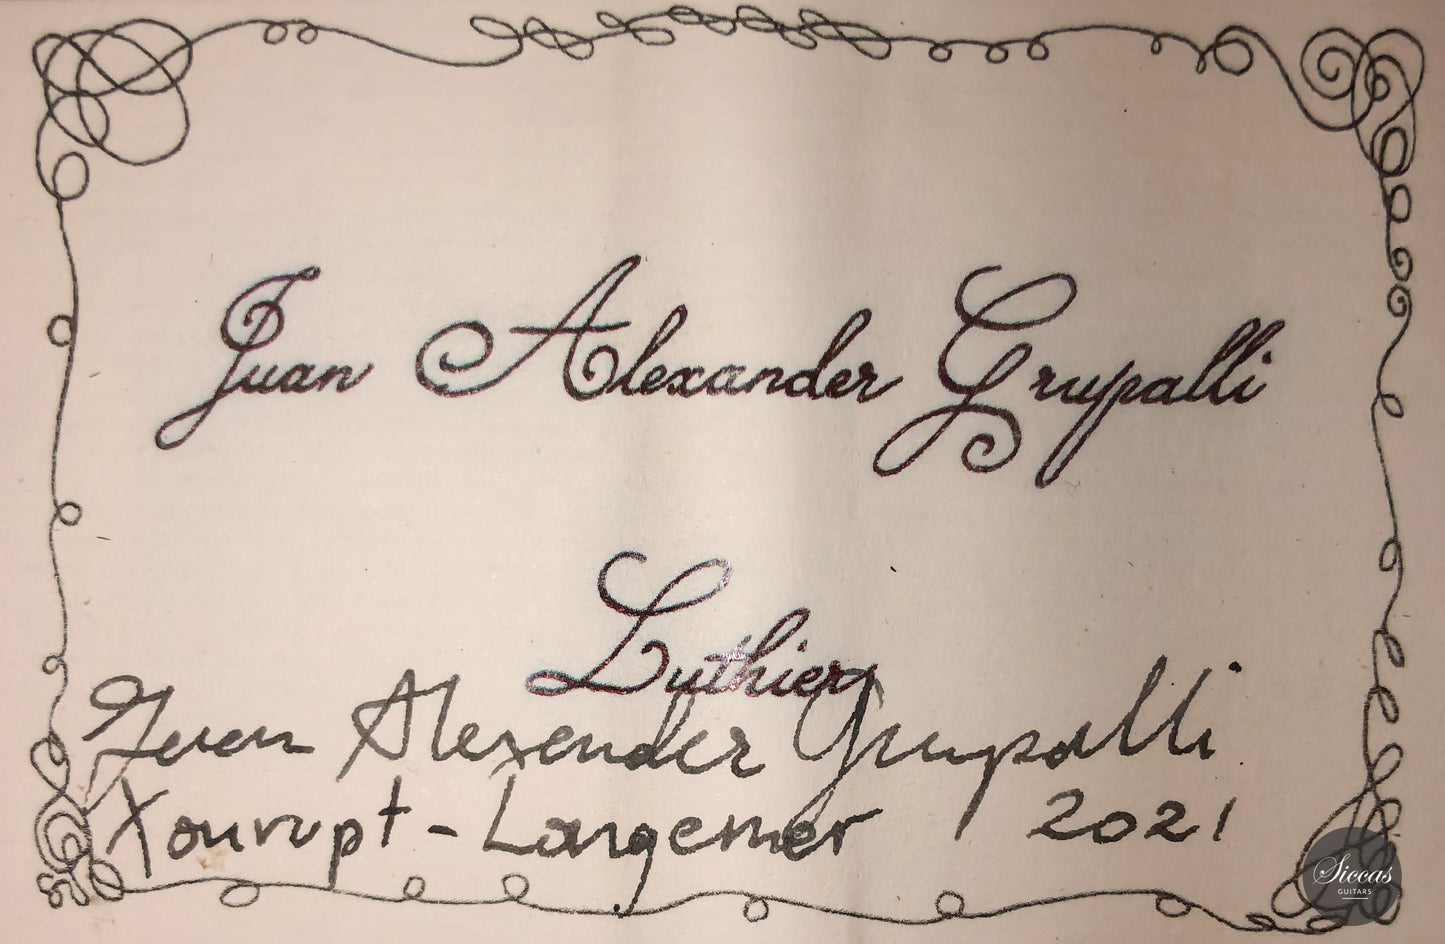 Juan Alexander Grupalli
Luthier
Juan Alexander Grupalli
Xonrupt - Longemer 2021
Siccas
GUITARS